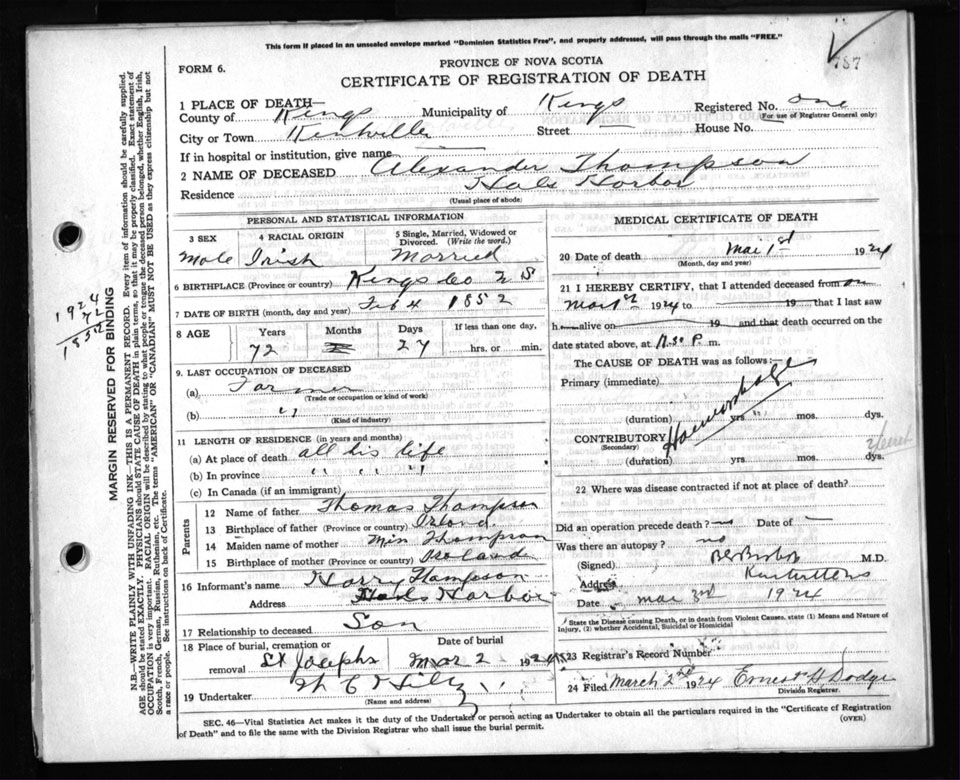 This form if placed in an unsealed envelope marked "Dominion Statistics Free", and properly addressed, will pass through the mails "FREE."
FORM 6.
PROVINCE OF NOVA SCOTIA
187
CERTIFICATE OF REGISTRATION OF DEATH
1 PLACE OF DEATH—
County of Kings Municipality of Kings Registered No. one
(For use of Registrar General only)
City or Town Kentville Street House No.
If in hospital or institution, give name
2 NAME OF DECEASED Alexander Thompson
Residence Hals Harbor
(Usual place of abode)
PERSONAL AND STATISTICAL INFORMATION
3 SEX 4 RACIAL ORIGIN 5 Single, Married, Widowed or Divorced. (Write the word.)
Male Irish Married
6 BIRTHPLACE (Province or country) Kings Co N S
7 DATE OF BIRTH (month, day and year) Feb 4 1852
8 AGE Years Months Days If less than one day,
72 27 hrs. or min.
9. LAST OCCUPATION OF DECEASED
(a) Farmer
(Trade or occupation or kind of work)
(b) "
(Kind of industry)
11 LENGTH OF RESIDENCE (in years and months)
(a) At place of death all his life
(b) In province " " "
(c) In Canada (if an immigrant)
Parents
12 Name of father Thomas Thompson
13 Birthplace of father (Province or country)
14 Maiden name of mother Min Thompson
15 Birthplace of mother (Province or country)
16 Informant's name Harry Thompson
Address Hals Harbor
17 Relationship to deceased Son
18 Place of burial, cremation or removal St Josephs Date of burial Mar 2 1924
19 Undertaker
(Name and address)
MEDICAL CERTIFICATE OF DEATH
20 Date of death Mar 1st 1924
(Month, day and year)
21 I HEREBY CERTIFY, that I attended deceased from
Mar 1st 1924 to 19 that I last saw
h alive on 19 and that death occurred on the
date stated above, at 11.30 P.m.
The CAUSE OF DEATH was as follows:—
Primary (immediate) Haemorrhage
(duration) yrs mos. dys.
CONTRIBUTORY
(Secondary)
(duration) yrs mos. dys.
22 Where was disease contracted if not at place of death?
Did an operation precede death? no Date of
Was there an autopsy? no
(Signed) M.D.
Address
Date Mar 3rd 1924
State the Disease causing Death, or in death from Violent Causes, state (1) Means and Nature of Injury, (2) whether Accidental, Suicidal or Homicidal
23 Registrar's Record Number
24 Filed March 2nd 1924 Ernest H Dodge
Division Registrar.
SEC. 46—Vital Statistics Act makes it the duty of the Undertaker or person acting as Undertaker to obtain all the particulars required in the "Certificate of Registration of Death" and to file the same with the Division Registrar who shall issue the burial permit.
(OVER)
MARGIN RESERVED FOR BINDING
N.B.—WRITE PLAINLY WITH UNFADING INK—THIS IS A PERMANENT RECORD. Every item of information should be carefully supplied.
AGE should be stated EXACTLY. PHYSICIANS should STATE CAUSE OF DEATH in plain terms, so that it may be properly classified. Exact statement of
OCCUPATION is very important. RACIAL ORIGIN will be described by stating to what people or tongue the deceased person belonged, whether English, Irish,
Scotch, French, German, Russian, Ruthenian, etc. The terms "AMERICAN" OR "CANADIAN" MUST NOT BE USED as they express citizenship but not
a race or people. See instructions on back of Certificate.
1924
72
1852